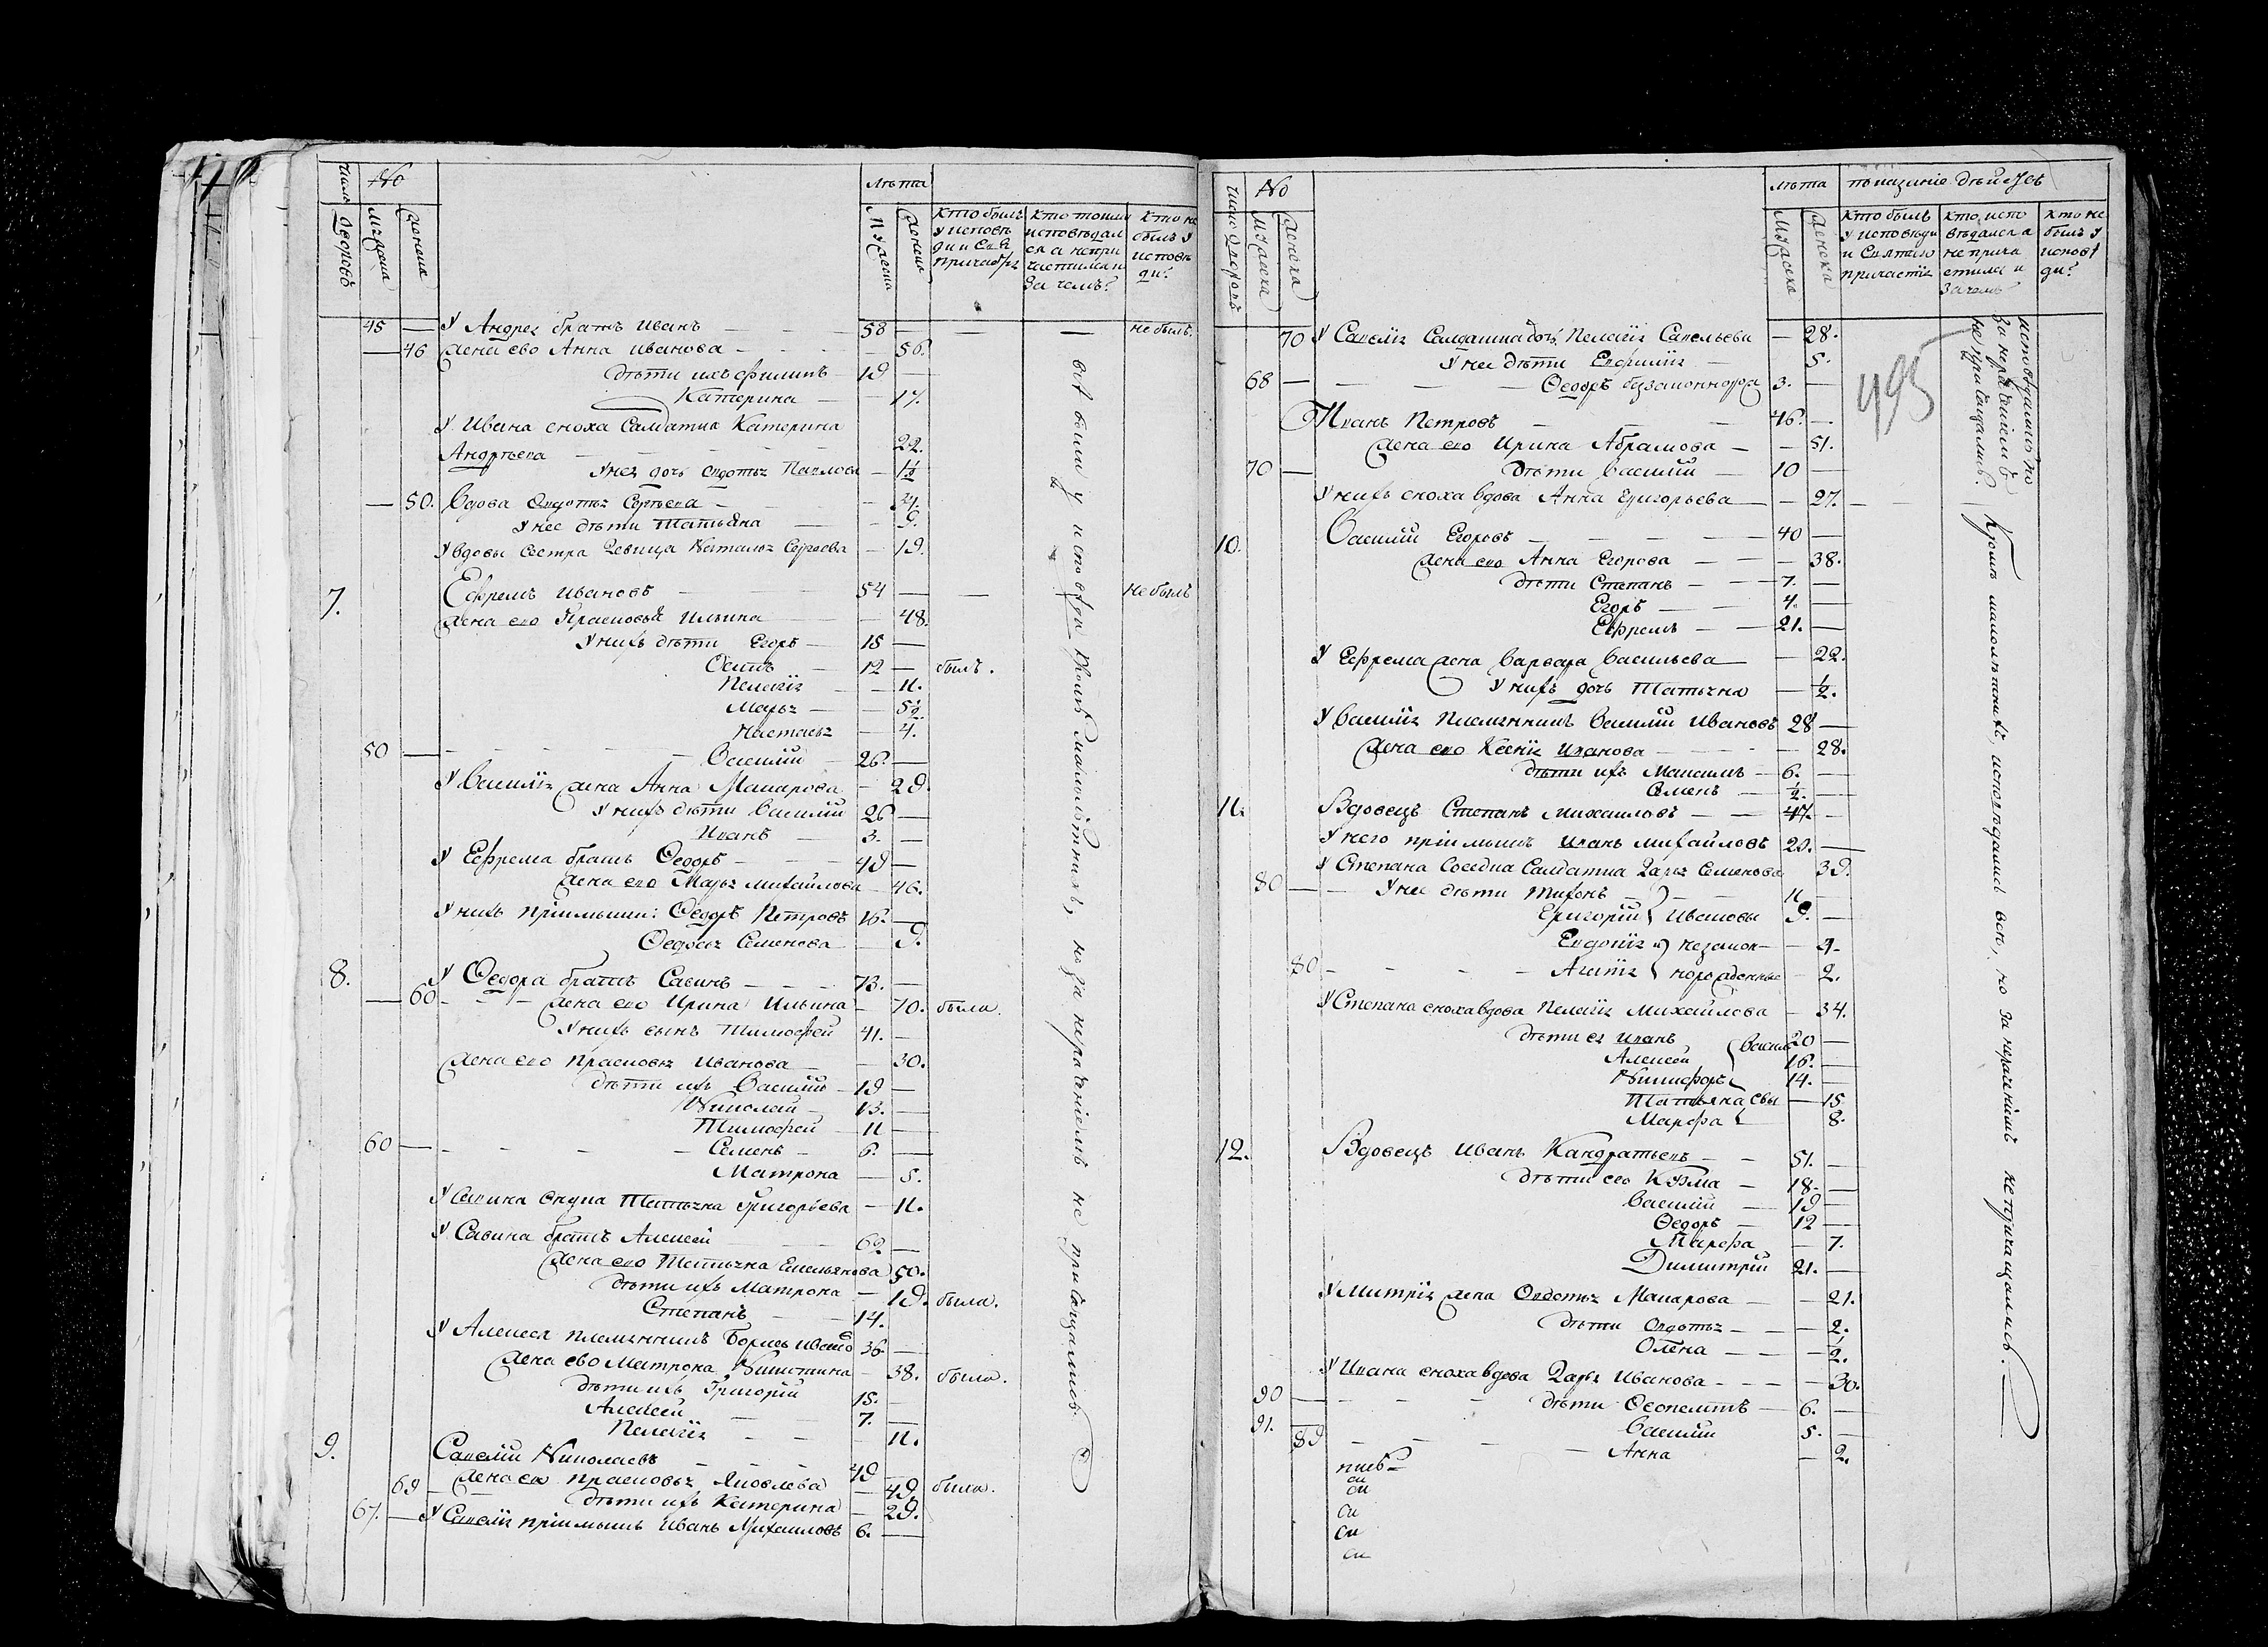 Число дворовъ
№
Мужеска
Женска
Лѣта
Мужеска
Женска
Кто былъ у исповѣди и Свя причастія
Кто токмо исповѣдался а не причастился и за чемъ?
Кто не былъ у исповѣди?
45 — У Андрея братъ Иванъ — 58 — — — не былъ
— 46 жена ево Анна Иванова — 56.
дѣти ихъ Филипъ — 19 —
Катерина — 17.
У Ивана сноха Салдатка Катерина
Андрѣева — 22.
У нея дочь Овдотья Павлова — 1½
— 50. Вдова Овдотья Сергѣева —
У нее дѣти Татьяна — 9.
У вдовы сестра девица Наталья Сергеева — 19.
7. Ефремъ Ивановъ — 54 — — не былъ
жена ево Прасковья Ильина — 48.
У нихъ дѣти Егоръ — 15 —
Осипъ — 12 — былъ.
Пелагія — 11.
Марья — 5½.
Настасья — 4.
50 — Василий — 26. —
У Василія жена Анна Макарова — 29.
У нихъ дѣти Василий 26 —
Иванъ — 3. —
У Ефрема братъ Ѳедоръ — 49 —
жена ево Марья Михайлова — 46.
У нихъ приимыши: Ѳедоръ Петровъ 16. —
Ѳедосья Семенова — 9.
8. У Ѳедора братъ Савинъ — 73. —
— 60 — жена ево Ирина Ильина — 70. была.
У нихъ сынъ Тимофей 41. —
жена ево Прасковья Иванова — 30.
дѣти ихъ Василий — 19 —
Николай — 13. —
Тимофей — 11 —
60 — Семенъ — 6. —
Матрона — 5.
У Савина внука Татьяна Григорьева — 11.
У Савина братъ Алексей — 62. —
жена ево Татьяна Емельянова 50.
дѣти ихъ Матрона — 19. была.
Степанъ — 14.
У Алексея племянникъ Борисъ Ивановъ 36 —
жена ево Матрона Никитина — 38. была.
дѣти ихъ Григорій 15. —
Алексей — 7. —
Пелагія — 11.
9. Савелий Николаевъ — 49
69 — жена ево Прасковья Яковлева — 49. была.
дѣти ихъ Катерина — 29.
67. — У Савелія приимышъ Иванъ Михаиловъ 6. —
всѣ были у исповѣди кромѣ малолѣтнихъ, но за нерачениемъ не причащались.
Число дворовъ
№
Мужеска
Женска
Лѣта
Мужеска
Женска
показание дѣйства
Кто былъ у исповѣди и Святаго причастія
Кто исповѣдался а не причастился и за чемъ
Кто не былъ у исповѣди?
495
70 У Савелія Салдатка дочь Пелагія Савельева — 28.
У нее дѣти Евфимія — 5.
68 — Ѳедоръ безаконнорож 3. —
Иванъ Петровъ — 46. —
жена ево Ирина Абрамова — 51.
70 — дѣти Василий — 10 —
У нихъ сноха вдова Анна Григорьева — 27. —
10. Василий Егоровъ — 40 —
жена ево Анна Егорова — 38.
дѣти Степанъ — 7. —
Егоръ — 4. —
Ефремъ — 21. —
У Ефрема жена Варвара Васильева — 22.
У нихъ дочь Татьяна — ½.
У Василія племянникъ Василий Ивановъ 28 —
жена ево Ксенія Иванова — 28.
дѣти ихъ Максимъ — 6. —
Семенъ — ½. —
11. Вдовецъ Степанъ Михаиловъ — 47. —
У него приимышъ Иванъ Михайловъ 20. —
У Степана соседка Салдатка Дарья Семенова 39.
80 — У нее дѣти Тихонъ — 11 —
Григорій Ивановы 9. —
Евдокія незакон — 4.
80 — Агапія норожденные — 2.
У Степана сноха вдова Пелагія Михайлова — 34.
дѣти ея Иванъ 20 —
Алексей Василь 16. —
Никифоръ 14. —
Татьяна евы — 15
Марфа — 8.
12. Вдовецъ Иванъ Кандратьевъ — 51. —
дѣти ево Козма — 18. —
Василий — 19 —
Ѳедоръ — 12 —
Марфа — 7.
Димитрий 21. —
У Митрія жена Овдотья Макарова — 21.
дѣти Овдотья — 2.
Олена — ½.
У Ивана сноха вдова Дарья Иванова — 30.
90 — дѣти Ѳеопемптъ — 6. —
91. Василий 5. —
89 — Анна — 2.
исповѣдались но за нерачениемъ не причащались.
Кромѣ малолѣтнихъ, исповѣдались всѣ, но за нерачениемъ не причащались.